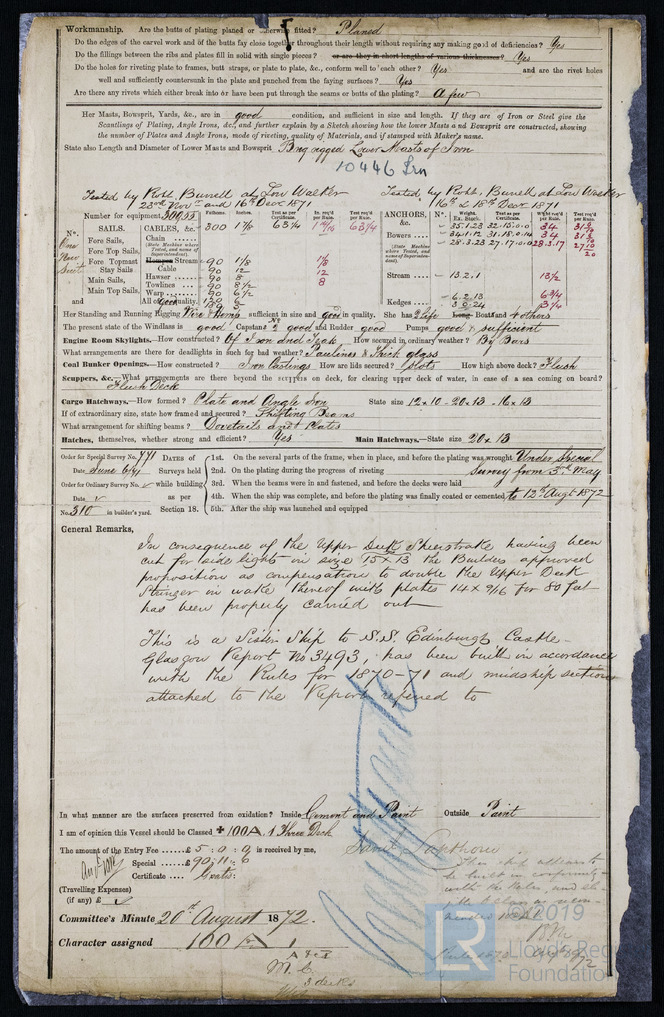 Workmanship. Are the butts of plating planed or otherwise fitted? Planed
Do the edges of the carvel work and of the butts fay close together throughout their length without requiring any making good of deficiencies? Yes
Do the fillings between the ribs and plates fill in solid with single pieces? or are they in short lengths of various thicknesses? Yes
Do the holes for riveting plate to frames, butt straps, or plate to plate, &c., conform well to each other? Yes and are the rivet holes
well and sufficiently countersunk in the plate and punched from the faying surfaces? Yes
Are there any rivets which either break into or have been put through the seams or butts of the plating? A few
Her Masts, Bowsprit, Yards, &c., are in good condition, and sufficient in size and length. If they are of Iron or Steel give the
Scantlings of Plating, Angle Irons, &c., and further explain by a Sketch showing how the lower Masts and Bowsprit are constructed, showing
the number of Plates and Angle Irons, mode of riveting, quality of Materials, and if stamped with Maker's name.
State also Length and Diameter of Lower Masts and Bowsprit Brig rigged Lower Masts of Iron
10446 Irn
Tested by Robt. Burrell at Low Walker Tested by Robt. Burrell at Low Walker
23rd Nov and 16th Decr 1871 16th & 18th Decr 1871
Number for equipment
Fathoms. Inches. Test as per Certificate. In. req'd per Rule. Test req'd per Rule.
Nº. SAILS. CABLES, &c. 300 1 7/8 63 1/4 63 1/4
ANCHORS, &c. Nº. Weight. Ex. Stock. Test as per Certificate. Weight req'd per Rule. Test req'd per Rule.
Fore Sails, Chain
Bowers 34.1.12 34
(State Machine where Tested, and name of Superintendent).
Fore Top Sails, 28.3.23 28.3.17
Fore Topmast Stream 90 1 1/8
Stay Sails Cable 90 12 12
Main Sails, Hawser 90 8 8 Stream 13.2.1 13 1/2
Towlines 90 8 1/2
Main Top Sails, Warp 90 6 1/2 6.2.13 6 3/4
and All of good quality. Kedges 3.0.24
Her Standing and Running Rigging Wire & Hemp sufficient in size and good in quality. She has 2 Life Long Boats and 4 others
The present state of the Windlass is good Capstan 2 good and Rudder good Pumps good & sufficient
Engine Room Skylights.—How constructed? Of Iron and Teak How secured in ordinary weather? By Bars
What arrangements are there for deadlights in such for bad weather? Paulines & thick glass
Coal Bunker Openings.—How constructed? Iron Castings How are lids secured? Slots How high above deck? Flush
Scuppers, &c.—What arrangements are there beyond the scuppers on deck, for clearing upper deck of water, in case of a sea coming on board?
Flush Deck
Cargo Hatchways.—How formed? Plate and Angle Iron State size 12 x 10 - 20 x 13 - 16 x 13
If of extraordinary size, state how framed and secured? Shifting Beams
What arrangement for shifting beams? Dovetails and Plates
Hatches, themselves, whether strong and efficient? Yes Main Hatchways.—State size 20 x 13
Order for Special Survey No. 771
Date June 6/71
Order for Ordinary Survey No. ✓
Date ✓
No. 310 in builder's yard.
DATES of Surveys held while building as per Section 18.
1st. On the several parts of the frame, when in place, and before the plating was wrought Under Special
2nd. On the plating during the progress of riveting Survey from 3rd May
3rd. When the beams were in and fastened, and before the decks were laid
4th. When the ship was complete, and before the plating was finally coated or cemented to 12th Augt 1872
5th. After the ship was launched and equipped
General Remarks,
In consequence of the Upper Deck Sheerstrake having been
cut for side lights in size 15 x 13 the Builders approved
proposition as compensation to double the Upper Deck
Stringer in wake thereof with plates 14 x 9/16 for 80 feet
has been properly carried out
This is a Sister Ship to S.S. Edinburgh Castle
Glasgow Report No 3493, has been built in accordance
with the Rules for 1870-71 and midship section
attached to the Report referred to
In what manner are the surfaces preserved from oxidation? Inside Cement and Paint Outside Paint
I am of opinion this Vessel should be Classed +100A. 1 Three Deck
The amount of the Entry Fee £5 : 0 : 0 is received by me,
Special £90 : 11 : 6
Certificate Gratis:
(Travelling Expenses)
(if any) £
This ship appears to
be built in conformity
with the Rules, and
Committee's Minute 20th August 1872.
Character assigned 100 A 1
A & C
M.C.
3 decks
©2019
LR
Lloyd's Reg
Foundation